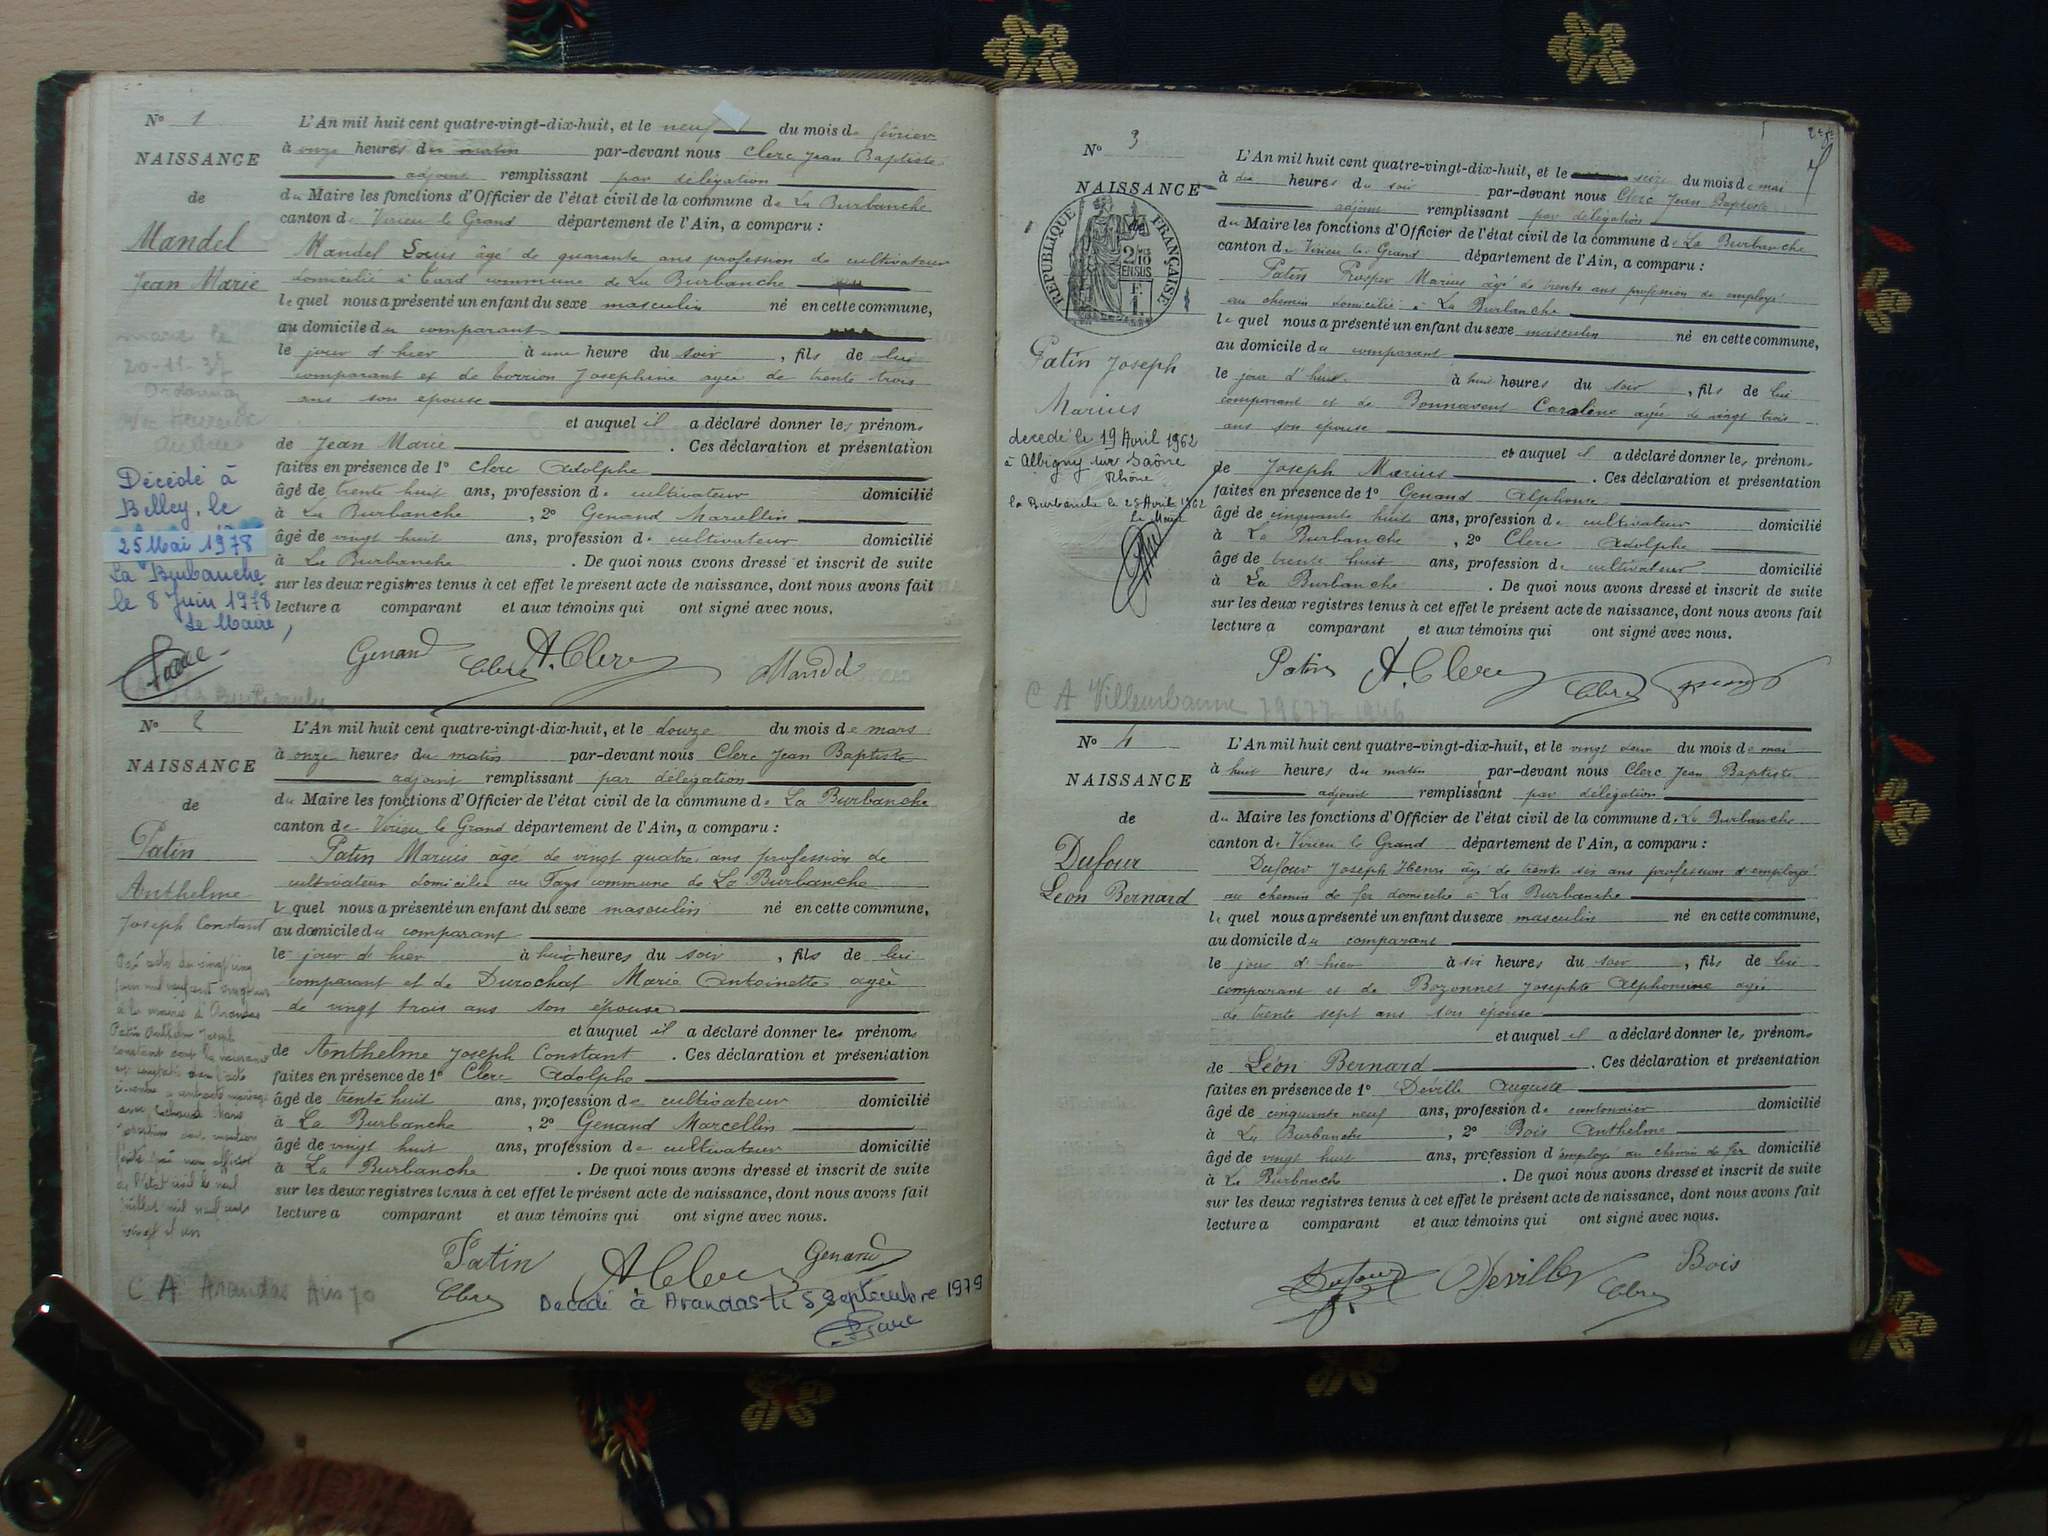 N° 1
NAISSANCE
de
Mandel
Jean Marie
marié le
20-11-37
Décédé à
Belley, le
25 Mai 1978
La Burbanche
le 8 Juin 1978
Le Maire,
L'An mil huit cent quatre-vingt-dix-huit, et le neuf du mois de février
à onze heures du matin par-devant nous Clerc Jean Baptiste
adjoint remplissant par délégation
du Maire les fonctions d'Officier de l'état civil de la commune de La Burbanche
canton de Virieu le Grand département de l'Ain, a comparu :
Mandel Louis âgé de quarante ans profession de cultivateur
domicilié à Tard commune de La Burbanche
lequel nous a présenté un enfant du sexe masculin né en cette commune,
au domicile du comparant
le jour d'hier à une heure du soir, fils de lui
comparant et de Josephine agée de trente trois
ans son épouse
et auquel il a déclaré donner les prénoms
de Jean Marie. Ces déclaration et présentation
faites en présence de 1° Clerc Adolphe
âgé de trente huit ans, profession de cultivateur domicilié
à La Burbanche, 2° Genand Marcellin
âgé de vingt huit ans, profession de cultivateur domicilié
à La Burbanche. De quoi nous avons dressé et inscrit de suite
sur les deux registres tenus à cet effet le présent acte de naissance, dont nous avons fait
lecture a comparant et aux témoins qui ont signé avec nous.
Genand Clerc A. Clerc Mandel
N° 2
NAISSANCE
de
Patin
Anthelme
Joseph Constant
L'An mil huit cent quatre-vingt-dix-huit, et le douze du mois de mars
à onze heures du matin par-devant nous Clerc Jean Baptiste
adjoint remplissant par délégation
du Maire les fonctions d'Officier de l'état civil de la commune de La Burbanche
canton de Virieu le Grand département de l'Ain, a comparu :
Patin Marius âgé de vingt quatre ans profession de
cultivateur domicilié au Fays commune de La Burbanche
lequel nous a présenté un enfant du sexe masculin né en cette commune,
au domicile du comparant
le jour d'hier à huit heures du soir, fils de lui
comparant et de Durochat Marie Antoinette agée
de vingt trois ans son épouse
et auquel il a déclaré donner les prénoms
de Anthelme Joseph Constant. Ces déclaration et présentation
faites en présence de 1° Clerc Adolphe
âgé de trente huit ans, profession de cultivateur domicilié
à La Burbanche, 2° Genand Marcellin
âgé de vingt huit ans, profession de cultivateur domicilié
à La Burbanche. De quoi nous avons dressé et inscrit de suite
sur les deux registres tenus à cet effet le présent acte de naissance, dont nous avons fait
lecture a comparant et aux témoins qui ont signé avec nous.
Patin A Clerc Genand
Clerc
C A Arandas Ain 70
Décédé à Arandas le 5 Septembre 1979
N° 3
NAISSANCE
de
RÉPUBLIQUE FRANÇAISE
Patin Joseph
Marius
decedé le 19 Avril 1962
à Albigny sur Saône
Rhône
la Burbanche le 25 Avril 1962
Le Maire
L'An mil huit cent quatre-vingt-dix-huit, et le seize du mois de mai
à dix heures du soir par-devant nous Clerc Jean Baptiste
adjoint remplissant par délégation
du Maire les fonctions d'Officier de l'état civil de la commune de La Burbanche
canton de Virieu le Grand département de l'Ain, a comparu :
Patin Prosper Marius âgé de trente ans profession de employé
au chemin domicilié à La Burbanche
lequel nous a présenté un enfant du sexe masculin né en cette commune,
au domicile du comparant
le jour d'hui à huit heures du soir, fils de lui
comparant et de Bonnavent Caroline agée de vingt trois
ans son épouse
et auquel il a déclaré donner les prénoms
de Joseph Marius. Ces déclaration et présentation
faites en présence de 1° Genand Alphonse
âgé de cinquante huit ans, profession de cultivateur domicilié
à La Burbanche, 2° Clerc Adolphe
âgé de trente huit ans, profession de cultivateur domicilié
à La Burbanche. De quoi nous avons dressé et inscrit de suite
sur les deux registres tenus à cet effet le présent acte de naissance, dont nous avons fait
lecture a comparant et aux témoins qui ont signé avec nous.
Patin A. Clerc Clerc
C A Villeurbanne 1946
N° 4
NAISSANCE
de
Dufour
Léon Bernard
L'An mil huit cent quatre-vingt-dix-huit, et le vingt deux du mois de mai
à huit heures du matin par-devant nous Clerc Jean Baptiste
adjoint remplissant par délégation
du Maire les fonctions d'Officier de l'état civil de la commune de La Burbanche
canton de Virieu le Grand département de l'Ain, a comparu :
Dufour Joseph Henri âgé de trente six ans profession d'employé
au chemin de fer domicilié à La Burbanche
lequel nous a présenté un enfant du sexe masculin né en cette commune,
au domicile du comparant
le jour d'hier à six heures du soir, fils de lui
comparant et de Bozonnet Josephte Alphonsine agée
de trente sept ans son épouse
et auquel il a déclaré donner les prénoms
de Léon Bernard. Ces déclaration et présentation
faites en présence de 1° Deville Auguste
âgé de cinquante neuf ans, profession de cantonnier domicilié
à La Burbanche, 2° Bois Anthelme
âgé de vingt huit ans, profession d'employé au chemin de fer domicilié
à La Burbanche. De quoi nous avons dressé et inscrit de suite
sur les deux registres tenus à cet effet le présent acte de naissance, dont nous avons fait
lecture a comparant et aux témoins qui ont signé avec nous.
Dufour Deville Clerc Bois